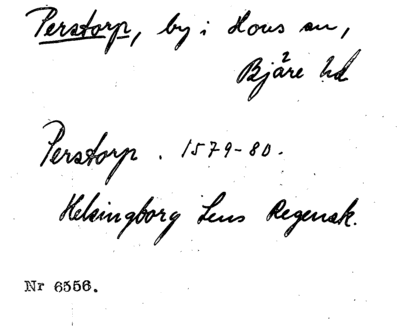 Perstorp, by i Hovs sn,
Bjäre hd
Perstorp. 1579-80.
Helsingborg Lens Regensk.
Nr 6556.